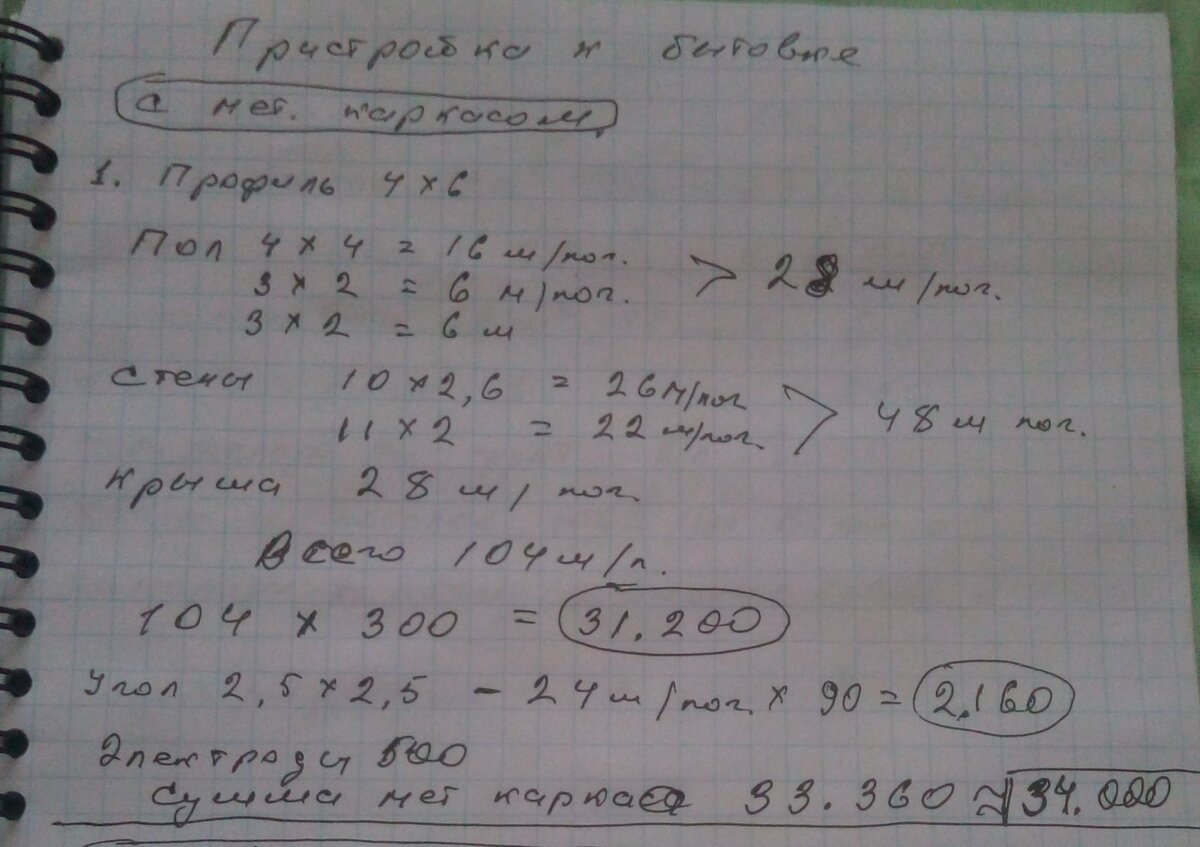 Пристройка к бытовке
с мет. каркасом.
1. Профиль 4×6
Пол 4×4 = 16 м/пог.
3×2 = 6 м/пог. > 28 м/пог.
3×2 = 6 м
Стены 10×2,6 = 26 м/пог
11×2 = 22 м/пог. > 48 м пог.
Крыша 28 м/пог.
Всего 104 м/п.
104 × 300 = 31.200
Угол 2,5×2,5 - 24 м/пог. × 90 = 2.160
Электроды 500
Сумма мет каркаса 33.360 ≈ 34.000